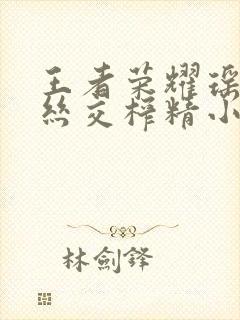 王者荣耀瑶
丝交榨精小
林劍鋒